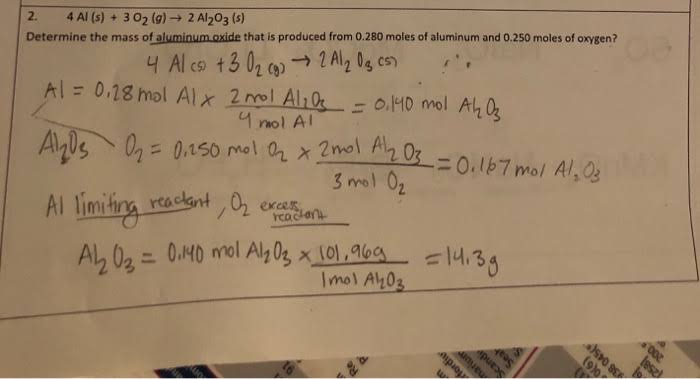 2. 4 Al (s) + 3 O₂ (g) → 2 Al₂O₃ (s)
Determine the mass of aluminum oxide that is produced from 0.280 moles of aluminum and 0.250 moles of oxygen?
4 Al (s) + 3 O₂ (g) → 2 Al₂ O₃ (s) ∴
Al = 0.28 mol Al x 2 mol Al₂O₃ / 4 mol Al = 0.140 mol Al₂O₃
Al₂O₃ O₂ = 0.250 mol O₂ x 2mol Al₂O₃ / 3 mol O₂ = 0.167 mol Al₂O₃
Al limiting reactant, O₂ excess reactant
Al₂O₃ = 0.140 mol Al₂O₃ x 101.96g / 1mol Al₂O₃ = 14.3g